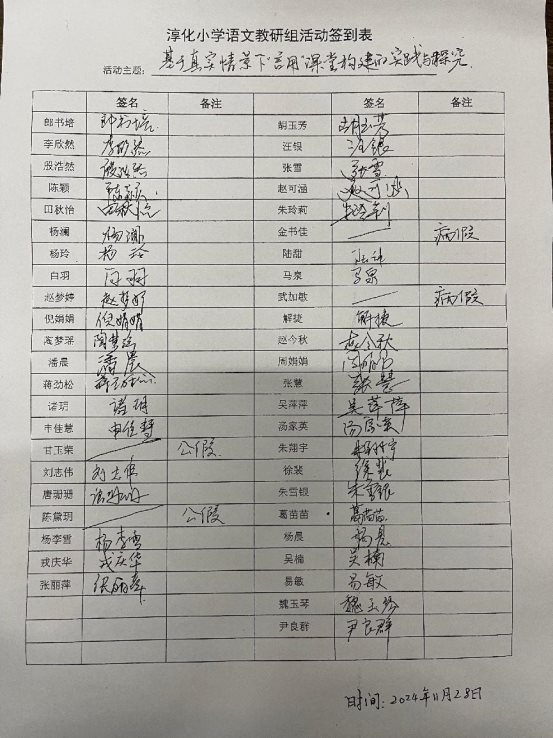 淳化小学语文教研组活动签到表
活动主题： 基于真实情景下"言用"课堂构建的实践与探究.
签名 备注 签名 备注
郎书培 郎书培 胡玉芳 胡玉芳
李欣然 李欣然 汪银 汪银
殷浩然 殷浩然 张雪 张雪
陈颖 陈颖 赵可涵 赵可涵
田秋怡 田秋怡 朱玲莉 朱玲莉
杨澜 杨澜 金书佳 病假
杨玲 杨玲 陆甜 陆甜
白羽 白羽 马泉 马泉
赵梦婷 赵梦婷 武加敏 病假
倪娟娟 倪娟娟 解捷 解捷
陶梦瑶 陶梦瑶 赵令秋 赵令秋
潘晨 潘晨 周娟娟
蒋劲松 张慧 张慧
诸玥 诸玥 吴萍萍 吴萍萍
申佳慧 申佳慧 汤家英 汤家英
甘玉荣 公假 朱翔宇 朱翔宇
刘志伟 刘志伟 徐裴 徐裴
唐珊珊 唐珊珊 朱雪银 朱雪银
陈黛玥 公假 葛苗苗 葛苗苗
杨李雪 杨李雪 杨晨 杨晨
戎庆华 戎庆华 吴楠 吴楠
张丽萍 张丽萍 易敏 易敏
魏玉琴 魏玉琴
尹良群 尹良群
时间: 2024年11月28日